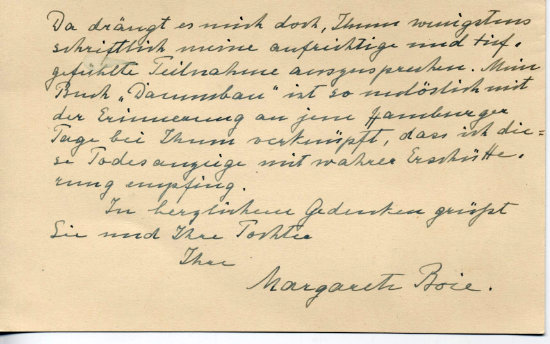 Da drängt es mich doch, Ihnen wenigstens
schriftlich meine aufrichtige und tief-
gefühlte Teilnahme auszusprechen. Mein
Buch „Dammbau" ist so unlöslich mit
der Erinnerung an jene Hamburger
Tage bei Ihnen verknüpft, dass ich die-
se Todesanzeige mit wahrer Erschütte-
rung empfing.
In herzlichem Gedenken grüßt
Sie und Ihre Tochter
Ihre
Margarete Boie.